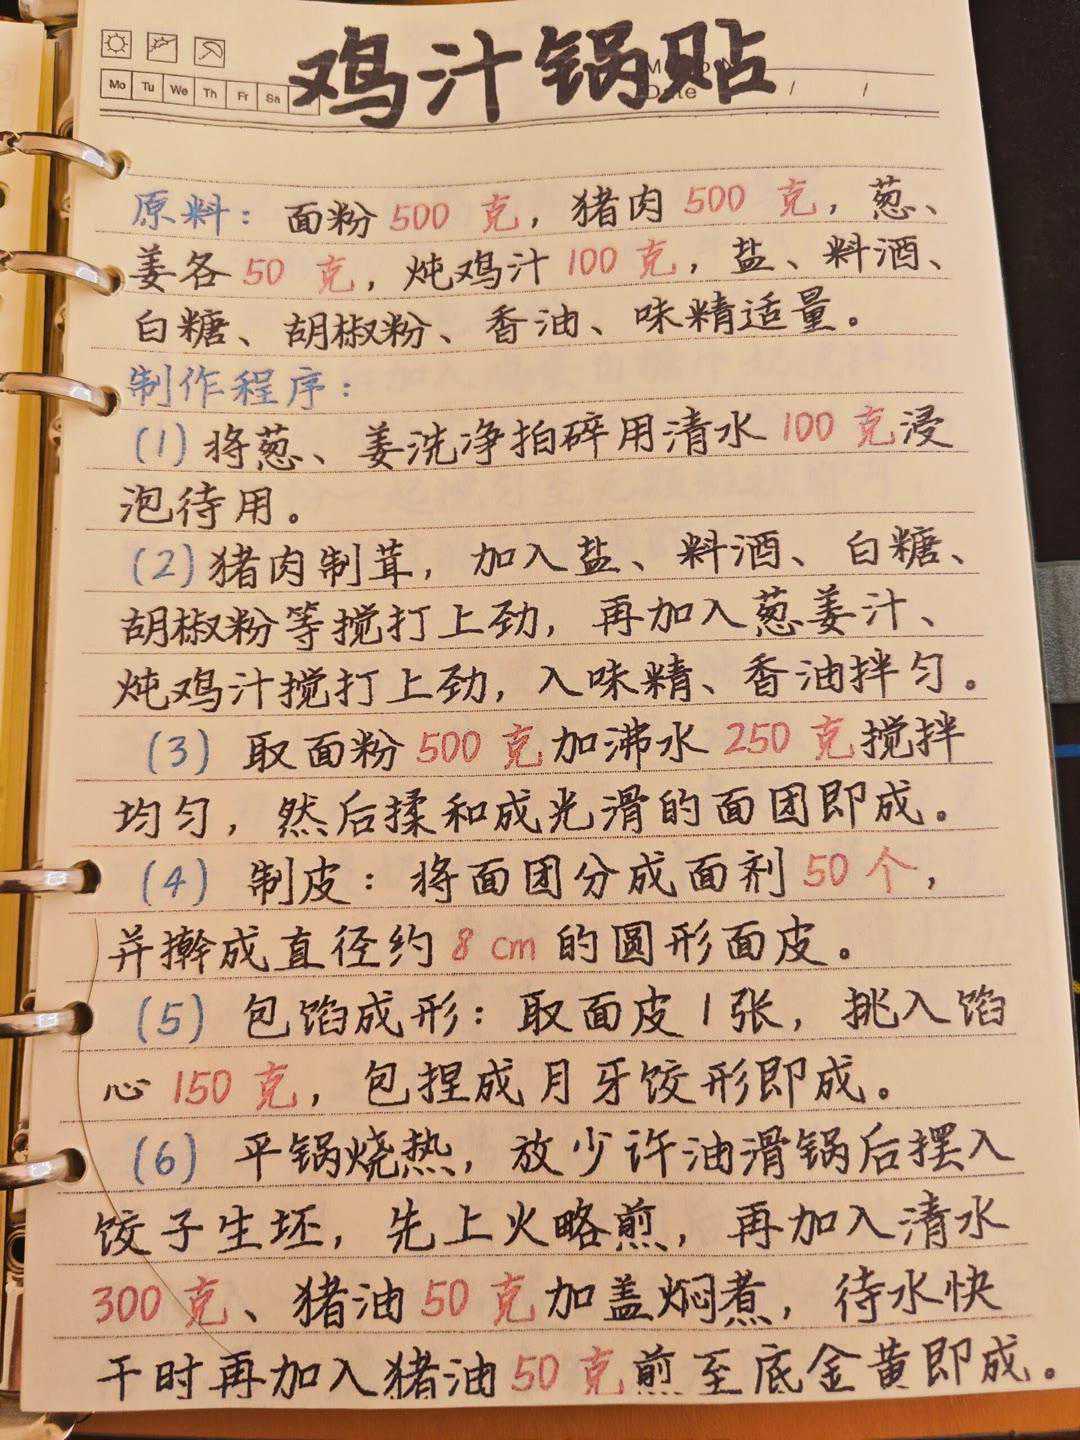 鸡汁锅贴
Mo Tu We Th Fr Sa
Date / /
原料：面粉500克，猪肉500克，葱、
姜各50克，炖鸡汁100克，盐、料酒、
白糖、胡椒粉、香油、味精适量。
制作程序：
(1)将葱、姜洗净拍碎用清水100克浸
泡待用。
(2)猪肉制茸，加入盐、料酒、白糖、
胡椒粉等搅打上劲，再加入葱姜汁、
炖鸡汁搅打上劲，入味精、香油拌匀。
(3)取面粉500克加沸水250克搅拌
均匀，然后揉和成光滑的面团即成。
(4)制皮：将面团分成面剂50个，
并擀成直径约8cm的圆形面皮。
(5)包馅成形：取面皮1张，挑入馅
心150克，包捏成月牙饺形即成。
(6)平锅烧热，放少许油滑锅后摆入
饺子生坯，先上火略煎，再加入清水
300克、猪油50克加盖焖煮，待水快
干时再加入猪油50克煎至底金黄即成。